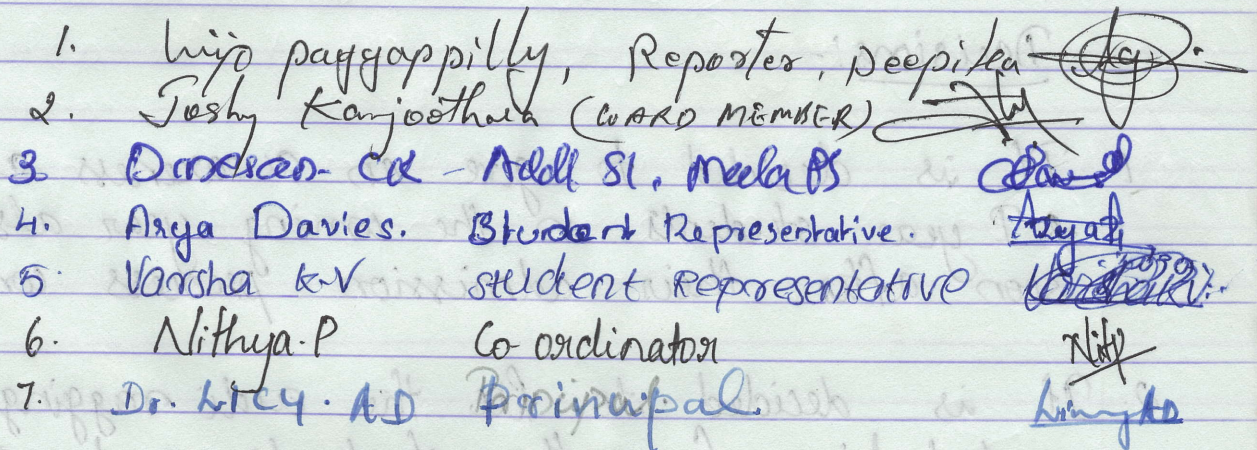 1. Lijo paggappilly, Reporter, Deepika
2. Joshy Kanjoothara (WARD MEMBER)
3. Dinesan CK - Addl SI, Meela PS
4. Arya Davies. Student Representative. Arya
5 Varsha K.V student Representative
6. Nithya.P Co-ordinator Nithy
7. Dr. Licy. AD Principal.